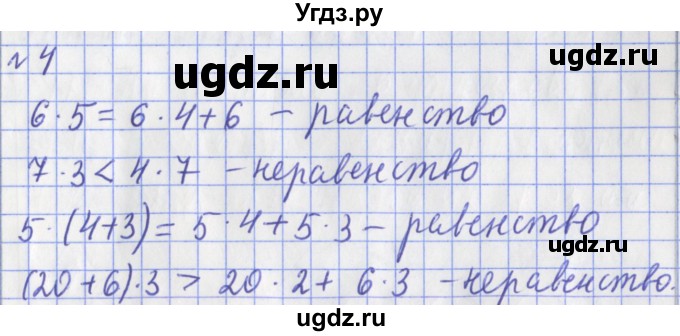 Угдз.ру
№ 4
ugdz.ru
6 · 5 = 6 · 4 + 6 – равенство
7 · 3 < 4 · 7 – неравенство
ugdz.ru
5 · (4+3) = 5 · 4 + 5 · 3 – равенство
(20 + 6) · 3 > 20 · 2 + 6 · 3 – неравенство.
ugdz.ru